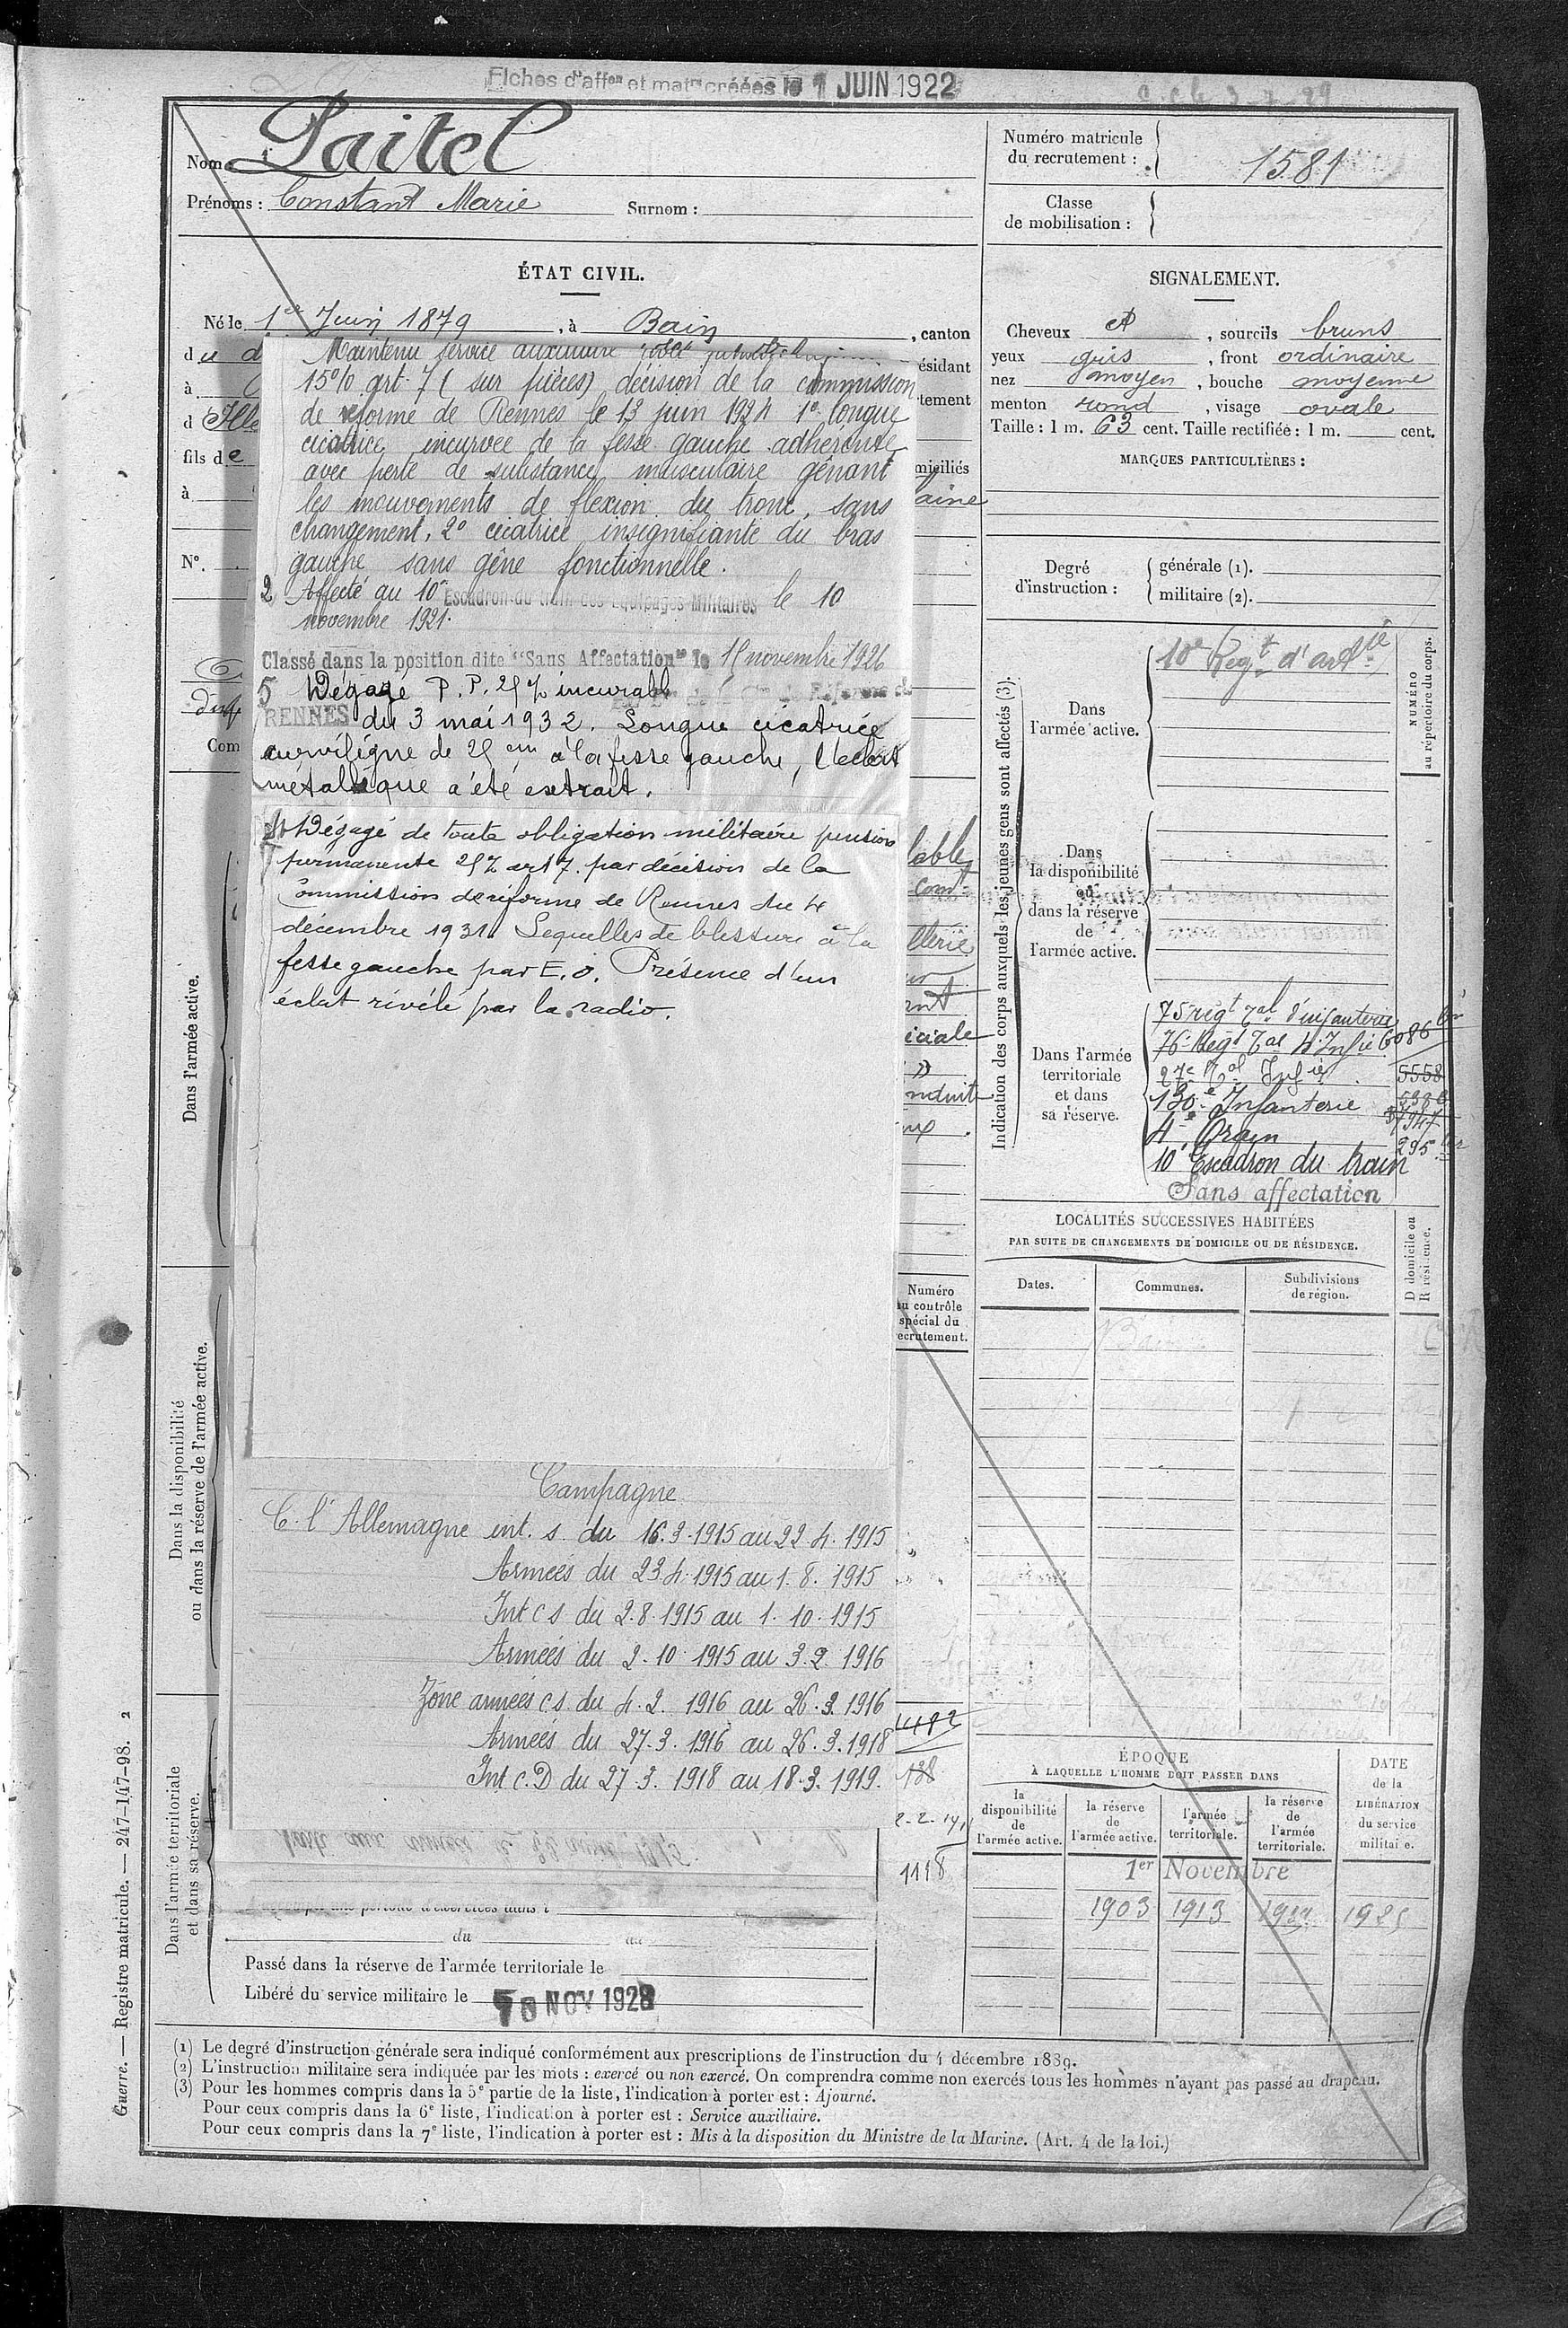 Fiches d'affon et matres créées le 1 JUIN 1922
Nom : Paitel
Prénoms : Constant Marie Surnom :
Numéro matricule
du recrutement : 1581
Classe
de mobilisation :
ÉTAT CIVIL.
Né le 1er Juin 1879, à Bain, canton
d
résidant
à
d'Ille
fils de
miciliés
à
aine
N°.
Com
Maintenu service auxiliaire
15% art. 7 (sur pièces) décision de la commission
de réforme de Rennes le 13 juin 1924 1° longue
cicatrice incurvée de la fesse gauche adhérente
avec perte de substance musculaire gênant
les mouvements de flexion du tronc, sans
changement, 2° cicatrice insignifiante du bras
gauche sans gêne fonctionnelle.
2 Affecté au 10e Escadron du train des Equipages Militaires le 10
novembre 1921.
Classé dans la position dite "Sans Affectation" le 15 novembre 1926
5 Dégagé P.P. 25% incurable
RENNES du 3 mai 1932. Longue cicatrice
curviligne de 25 cm à la fesse gauche, l'éclat
métallique a été extrait.
Dégagé de toute obligation militaire pension
permanente 25% art 7. par décision de la
Commission de réforme de Rennes du 4
décembre 1931. Sequelles de blessure à la
fesse gauche par E.O. Présence d'un
éclat révélé par la radio.
Campagne
C. l'Allemagne int. s. du 16.3.1915 au 22.4.1915
Armées du 23.4.1915 au 1.8.1915
Int c s du 2.8.1915 au 1.10.1915
Armées du 2.10.1915 au 3.2.1916
Zone armées c s. du 4.2.1916 au 26.3.1916
Armées du 27.3.1916 au 26.3.1918
Int c. D du 27.3.1918 au 18.3.1919.
Dans l'armée active.
Dans la disponibilité
ou dans la réserve de l'armée active.
Dans l'armée territoriale
et dans sa réserve.
Numéro
au contrôle
spécial du
recrutement.
1118
du au
Passé dans la réserve de l'armée territoriale le
Libéré du service militaire le NOV 1928
SIGNALEMENT.
Cheveux , sourcils bruns
yeux gris, front ordinaire
nez moyen, bouche moyenne
menton rond, visage ovale
Taille : 1 m. 63 cent. Taille rectifiée : 1 m. cent.
MARQUES PARTICULIÈRES :
Degré
d'instruction :
générale (1).
militaire (2).
Indication des corps auxquels les jeunes gens sont affectés (3).
NUMÉRO
au répertoire du corps.
Dans
l'armée active.
10e Régt d'artie
Dans
la disponibilité
ou
dans la réserve
de
l'armée active.
Dans l'armée
territoriale
et dans
sa réserve.
75 régt tal d'infanterie
76e Régt Tal d'Infie 6086
27e Tal Infie 5558
130e Infanterie
4e Train
295
10e Escadron du train
Sans affectation
LOCALITÉS SUCCESSIVES HABITÉES
PAR SUITE DE CHANGEMENTS DE DOMICILE OU DE RÉSIDENCE.
Dates. Communes. Subdivisions
de région.
D domicile ou
R résidence.
Bain
ÉPOQUE
À LAQUELLE L'HOMME DOIT PASSER DANS
DATE
de la
LIBÉRATION
du service
militaire.
la
disponibilité
de
l'armée active.
la réserve
de
l'armée active.
l'armée
territoriale.
la réserve
de
l'armée
territoriale.
1er Novembre
1903 1913 1925
(1) Le degré d'instruction générale sera indiqué conformément aux prescriptions de l'instruction du 4 décembre 1889.
(2) L'instruction militaire sera indiquée par les mots : exercé ou non exercé. On comprendra comme non exercés tous les hommes n'ayant pas passé au drapeau.
(3) Pour les hommes compris dans la 5e partie de la liste, l'indication à porter est : Ajourné.
Pour ceux compris dans la 6e liste, l'indication à porter est : Service auxiliaire.
Pour ceux compris dans la 7e liste, l'indication à porter est : Mis à la disposition du Ministre de la Marine. (Art. 4 de la loi.)
Guerre. — Registre matricule. — 247-147-98. 2